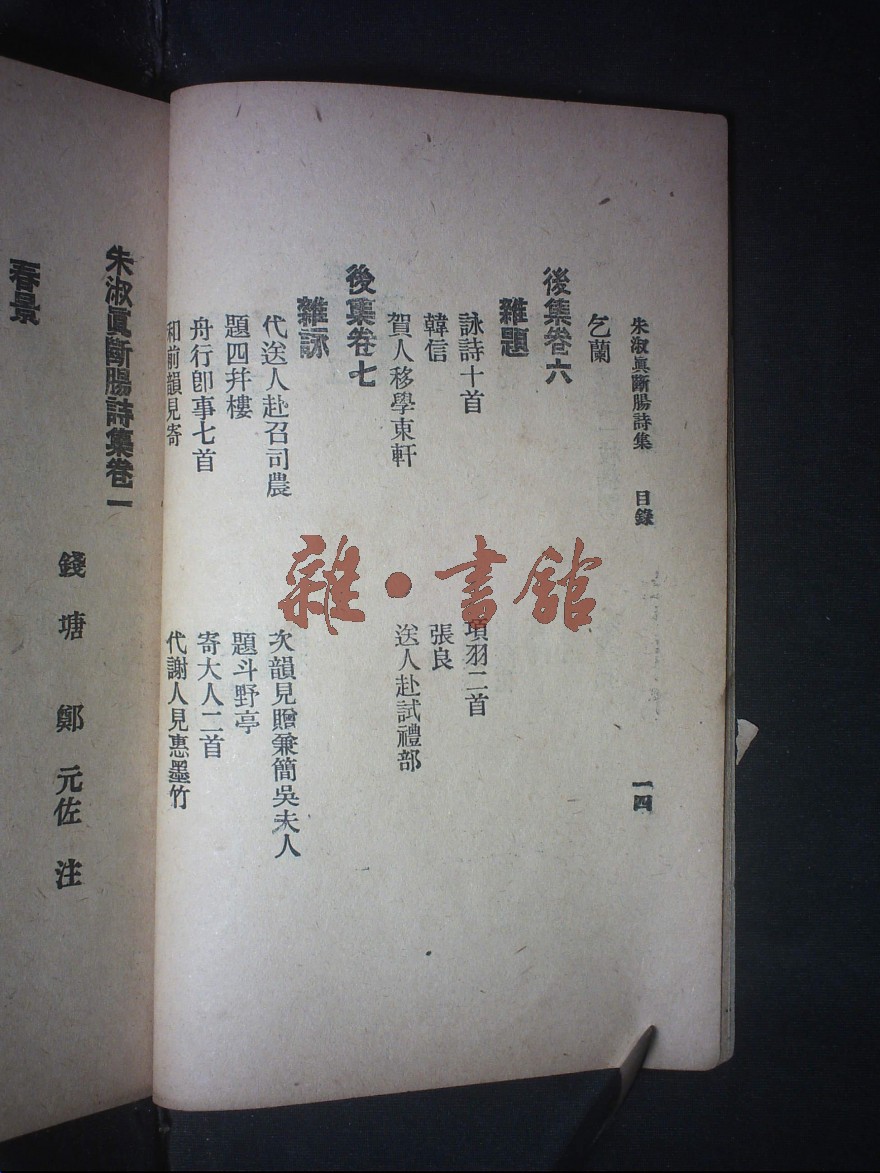 朱淑眞斷腸詩集 目錄 一四
乞蘭
後集卷六
雜題
詠詩十首 項羽二首
韓信 張良
賀人移學東軒 送人赴試禮部
後集卷七
雜詠
代送人赴召司農 次韻見贈兼簡吳夫人
題四幷樓 題斗野亭
舟行卽事七首 寄大人二首
和前韻見寄 代謝人見惠墨竹
朱淑眞斷腸詩集卷一
錢塘 鄭元佐 注
春景
雜·書館